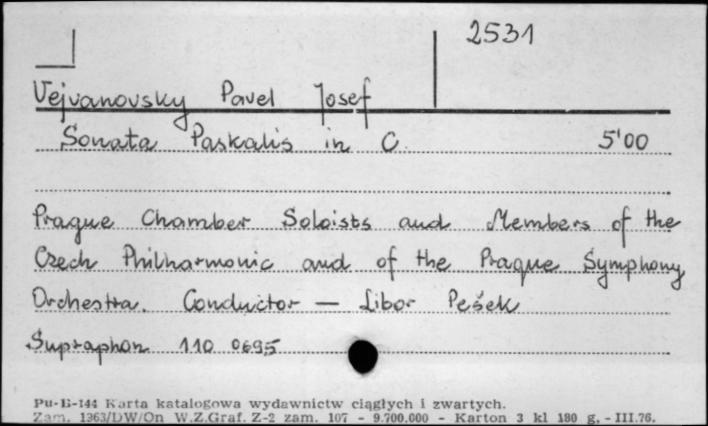 2531
Vejvanovsky Pavel Josef
Sonata Paskalis in C. 5'00
Prague Chamber Soloists and Members of the
Czech Philharmonic and of the Prague Symphony
Orchestra. Conductor — Libor Pešek
Supraphon 110 0695
Pu-B-144 Karta katalogowa wydawnictw ciągłych i zwartych.
Zam. 1363/DW/On W.Z.Graf. Z-2 zam. 107 - 9.700.000 - Karton 3 kl 180 g. - III.76.